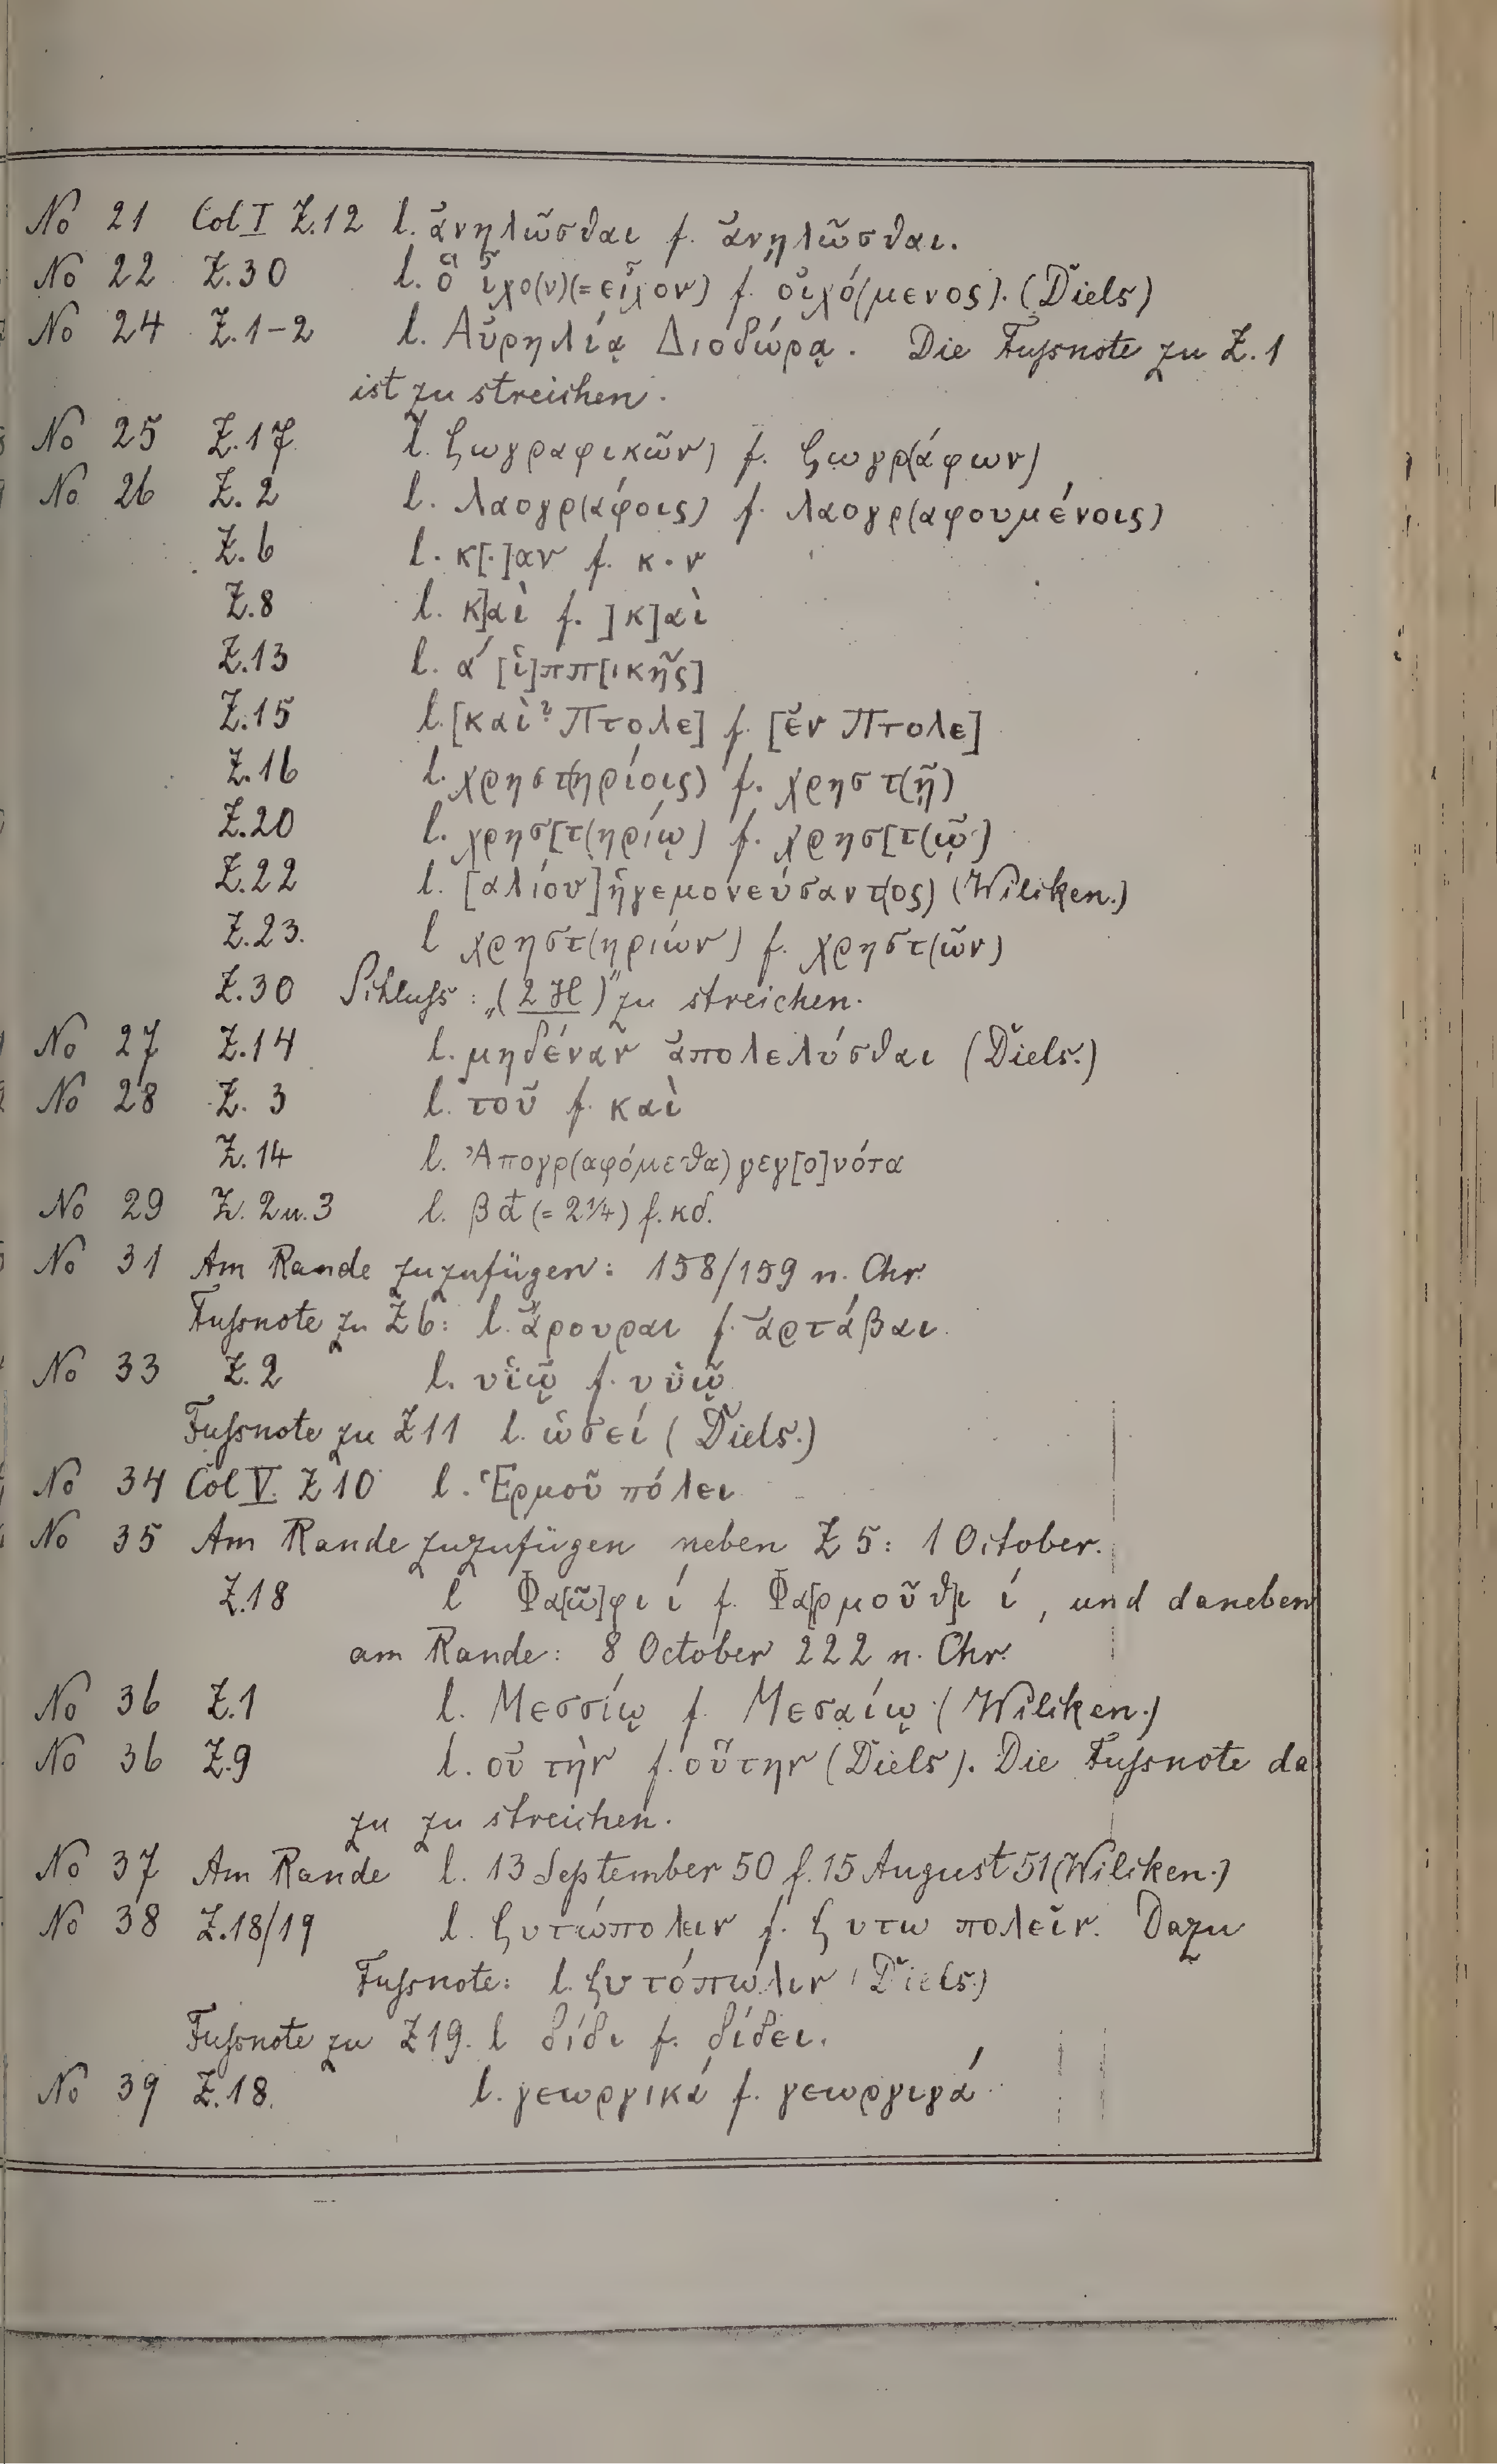 No 21 Col I Z.12 l. ἀνηλῶσθαι f. ἀνηλῶσθαι.
No 22 Z.30 l. ὃ ἶχο(ν)(=εἶχον) f. οἰχό(μενος). (Diels)
No 24 Z.1-2 l. Αὐρηλίᾳ Διοδώρᾳ. Die Fussnote zu Z.1
ist zu streichen.
No 25 Z.17 l. ζωγραφικῶν) f. ζωγρ(άφων)
No 26 Z.2 l. λαογρ(άφοις) f. λαογρ(αφουμένοις)
Z.6 l. κ[·]αν f. κ·ν
Z.8 l. κ]αὶ f. ]κ]αὶ
Z.13 l. α´ [ἱ]ππ[ικῆς]
Z.15 l. [καὶ? Πτολε] f. [ἐν Πτολε]
Z.16 l. χρηστ(ηρίοις) f. χρηστ(ῇ)
Z.20 l. χρησ[τ(ηρίῳ) f. χρησ[τ(ῷ)
Z.22 l. [αλίου] ἡγεμονεύσαντ(ος) (Wilcken.)
Z.23. l χρηστ(ηρίων) f. χρηστ(ῶν)
Z.30 Schluss: „(2 H)" zu streichen.
No 27 Z.14 l. μηδέναν ἀπολελύσθαι (Diels.)
No 28 Z. 3 l. τοῦ f. καὶ
Z.14 l. Ἀπογρ(αφόμεθα) γεγ[ο]νότα
No 29 Z. 2 u. 3 l. β đ (= 2 1/4) f. κδ.
No 31 Am Rande zuzufügen: 158/159 n. Chr.
Fussnote zu Z6: l. ἄρουραι f. ἀρτάβαι
No 33 Z.2 l. υἱῷ f. υὑῷ
Fussnote zu Z11 l. ὡσεί (Diels.)
No 34 Col V. Z10 l. Ἑρμοῦ πόλει
No 35 Am Rande zuzufügen neben Z 5: 1 October.
Z.18 l Φα[ῶ]φι ί f. Φα[ρμοῦθ]ι ί, und daneben
am Rande: 8 October 222 n. Chr.
No 36 Z.1 l. Μεσσίῳ f. Μεσαίῳ (Wilcken.)
No 36 Z.9 l. οὐ τὴν f. οὔτην (Diels). Die Fussnote da
zu zu streichen.
No 37 Am Rande l. 13 September 50 f. 15 August 51 (Wilcken.)
No 38 Z.18/19 l. ζυτώπολιν f. ζυτω πολεῖν. Dazu
Fussnote: l. ζυτόπωλιν (Diels.)
Fussnote zu Z19. l δίδι f. δίδει.
No 39 Z.18. l. γεωργικά f. γεωργιγά